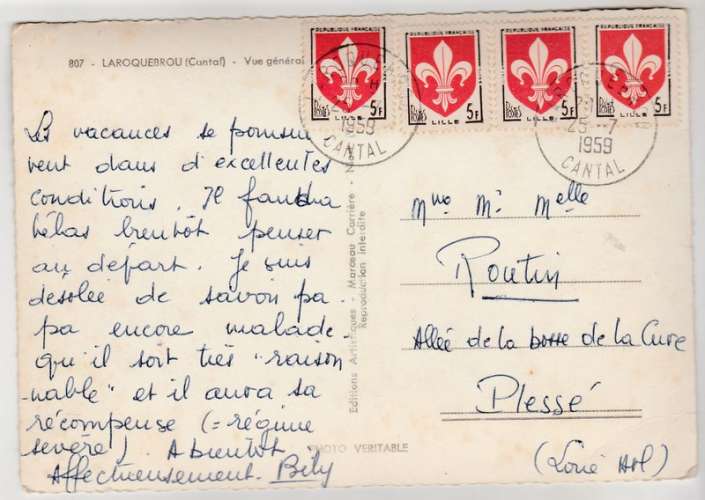 807 - LAROQUEBROU (Cantal) - Vue général
REPUBLIQUE FRANÇAISE
REPUBLIQUE FRANÇAISE
REPUBLIQUE FRANÇAISE
REPUBLIQUE FRANÇAISE
POSTES 5F
LILLE
POSTES 5F
LILLE
POSTES 5F
LILLE
POSTES 5F
LILLE
1959
CANTAL
25-7
1959
CANTAL
Les vacances se poursui
vent dans d'excellentes
conditions. Il faudra
hélas bientôt penser
au départ. Je suis
desolée de savoir pa-
pa encore malade
qu'il soit très "raison
-nable" et il aura sa
récompense (= régime
sevère). A bientôt.
Affectueusement. Bily
Editions Artistiques - Marceau Carrière - N
Reproduction interdite
PHOTO VERITABLE
Mme Mr Melle
Routin
Allée de la bosse de la Cure
Plessé
(Loire Atl)